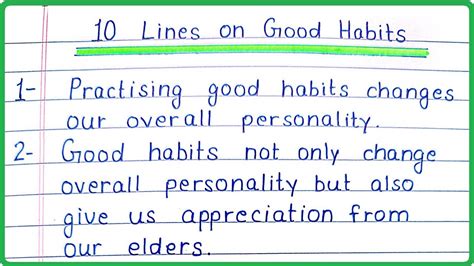 10 Lines on Good Habits
1- Practising good habits changes
our overall personality.
2- Good habits not only change
overall personality but also
give us appreciation from
our elders.